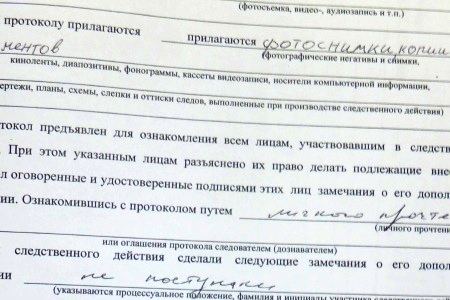 (фотосъемка, видео-, аудиозапись и т.п.)
протоколу прилагаются прилагаются фотоснимки, копии
ментов
(фотографические негативы и снимки,
киноленты, диапозитивы, фонограммы, кассеты видеозаписи, носители компьютерной информации,
ертежи, планы, схемы, слепки и оттиски следов, выполненные при производстве следственного действия)
токол предъявлен для ознакомления всем лицам, участвовавшим в следств
. При этом указанным лицам разъяснено их право делать подлежащие внес
л оговоренные и удостоверенные подписями этих лиц замечания о его допол
нии. Ознакомившись с протоколом путем личного прочте
(личного прочтени
или оглашения протокола следователем (дознавателем)
следственного действия сделали следующие замечания о его допо
нии не поступили
(указываются процессуальное положение, фамилия и инициалы участника следственного дей